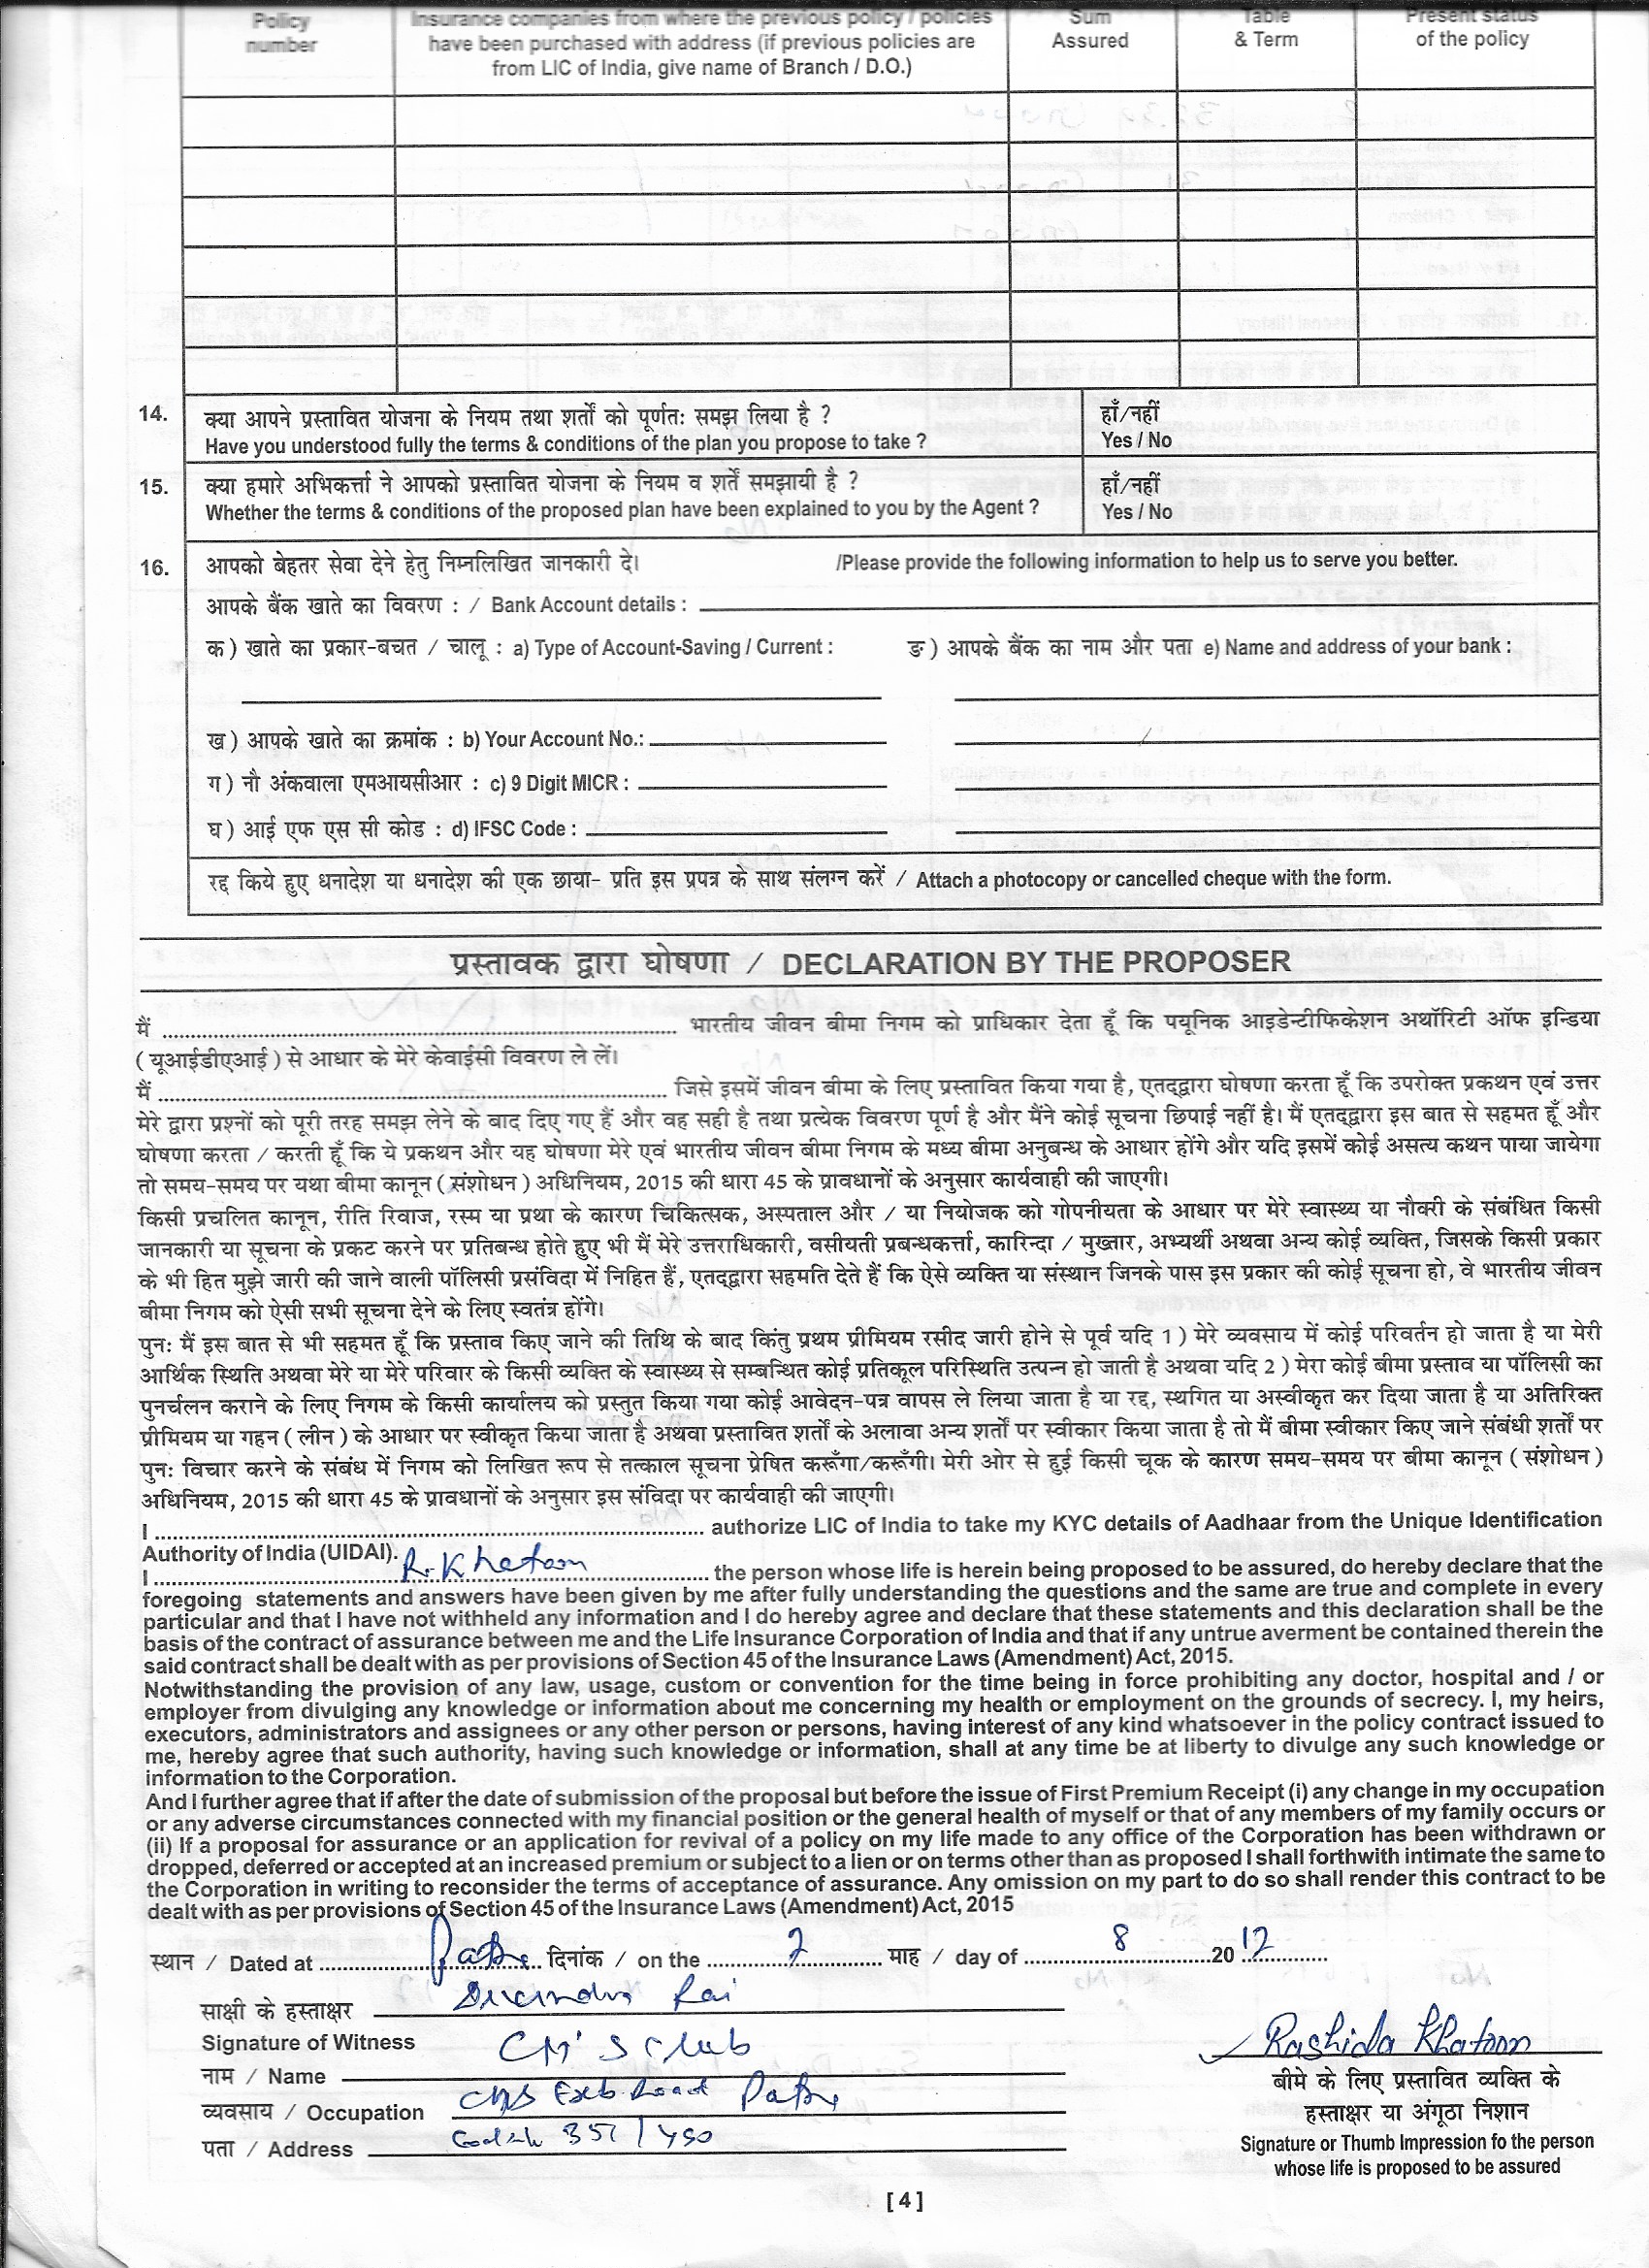 Policy number
Insurance companies from where the previous policy / policies have been purchased with address (if previous policies are from LIC of India, give name of Branch / D.O.)
Sum Assured
Table & Term
Present status of the policy
14. क्या आपने प्रस्तावित योजना के नियम तथा शर्तों को पूर्णतः समझ लिया है ? हाँ/नहीं
Have you understood fully the terms & conditions of the plan you propose to take ? Yes / No
15. क्या हमारे अभिकर्त्ता ने आपको प्रस्तावित योजना के नियम व शर्तें समझायी है ? हाँ/नहीं
Whether the terms & conditions of the proposed plan have been explained to you by the Agent ? Yes / No
16. आपको बेहतर सेवा देने हेतु निम्नलिखित जानकारी दे। /Please provide the following information to help us to serve you better.
आपके बैंक खाते का विवरण : / Bank Account details :
क ) खाते का प्रकार-बचत / चालू : a) Type of Account-Saving / Current : ङ ) आपके बैंक का नाम और पता e) Name and address of your bank :
ख ) आपके खाते का क्रमांक : b) Your Account No.:
ग ) नौ अंकवाला एमआयसीआर : c) 9 Digit MICR :
घ ) आई एफ एस सी कोड : d) IFSC Code :
रद्द किये हुए धनादेश या धनादेश की एक छाया- प्रति इस प्रपत्र के साथ संलग्न करें / Attach a photocopy or cancelled cheque with the form.
प्रस्तावक द्वारा घोषणा / DECLARATION BY THE PROPOSER
मैं ........ भारतीय जीवन बीमा निगम को प्राधिकार देता हूँ कि पयूनिक आइडेन्टीफिकेशन अथॉरिटी ऑफ इन्डिया
( यूआईडीएआई ) से आधार के मेरे केवाईसी विवरण ले लें।
मैं ........ जिसे इसमें जीवन बीमा के लिए प्रस्तावित किया गया है, एतद्द्वारा घोषणा करता हूँ कि उपरोक्त प्रकथन एवं उत्तर
मेरे द्वारा प्रश्नों को पूरी तरह समझ लेने के बाद दिए गए हैं और वह सही है तथा प्रत्येक विवरण पूर्ण है और मैंने कोई सूचना छिपाई नहीं है। मैं एतद्द्वारा इस बात से सहमत हूँ और
घोषणा करता / करती हूँ कि ये प्रकथन और यह घोषणा मेरे एवं भारतीय जीवन बीमा निगम के मध्य बीमा अनुबन्ध के आधार होंगे और यदि इसमें कोई असत्य कथन पाया जायेगा
तो समय-समय पर यथा बीमा कानून ( संशोधन ) अधिनियम, 2015 की धारा 45 के प्रावधानों के अनुसार कार्यवाही की जाएगी।
किसी प्रचलित कानून, रीति रिवाज, रस्म या प्रथा के कारण चिकित्सक, अस्पताल और / या नियोजक को गोपनीयता के आधार पर मेरे स्वास्थ्य या नौकरी के संबंधित किसी
जानकारी या सूचना के प्रकट करने पर प्रतिबन्ध होते हुए भी मैं मेरे उत्तराधिकारी, वसीयती प्रबन्धकर्त्ता, कारिन्दा / मुख्तार, अभ्यर्थी अथवा अन्य कोई व्यक्ति, जिसके किसी प्रकार
के भी हित मुझे जारी की जाने वाली पॉलिसी प्रसंविदा में निहित हैं, एतद्द्वारा सहमति देते हैं कि ऐसे व्यक्ति या संस्थान जिनके पास इस प्रकार की कोई सूचना हो, वे भारतीय जीवन
बीमा निगम को ऐसी सभी सूचना देने के लिए स्वतंत्र होंगे।
पुनः मैं इस बात से भी सहमत हूँ कि प्रस्ताव किए जाने की तिथि के बाद किंतु प्रथम प्रीमियम रसीद जारी होने से पूर्व यदि 1 ) मेरे व्यवसाय में कोई परिवर्तन हो जाता है या मेरी
आर्थिक स्थिति अथवा मेरे या मेरे परिवार के किसी व्यक्ति के स्वास्थ्य से सम्बन्धित कोई प्रतिकूल परिस्थिति उत्पन्न हो जाती है अथवा यदि 2 ) मेरा कोई बीमा प्रस्ताव या पॉलिसी का
पुनर्चलन कराने के लिए निगम के किसी कार्यालय को प्रस्तुत किया गया कोई आवेदन-पत्र वापस ले लिया जाता है या रद्द, स्थगित या अस्वीकृत कर दिया जाता है या अतिरिक्त
प्रीमियम या गहन ( लीन ) के आधार पर स्वीकृत किया जाता है अथवा प्रस्तावित शर्तों के अलावा अन्य शर्तों पर स्वीकार किया जाता है तो मैं बीमा स्वीकार किए जाने संबंधी शर्तों पर
पुनः विचार करने के संबंध में निगम को लिखित रूप से तत्काल सूचना प्रेषित करूँगा/करूँगी। मेरी ओर से हुई किसी चूक के कारण समय-समय पर बीमा कानून ( संशोधन )
अधिनियम, 2015 की धारा 45 के प्रावधानों के अनुसार इस संविदा पर कार्यवाही की जाएगी।
I ........ authorize LIC of India to take my KYC details of Aadhaar from the Unique Identification
Authority of India (UIDAI).
I ........ R. Khatoon ........ the person whose life is herein being proposed to be assured, do hereby declare that the
foregoing statements and answers have been given by me after fully understanding the questions and the same are true and complete in every
particular and that I have not withheld any information and I do hereby agree and declare that these statements and this declaration shall be the
basis of the contract of assurance between me and the Life Insurance Corporation of India and that if any untrue averment be contained therein the
said contract shall be dealt with as per provisions of Section 45 of the Insurance Laws (Amendment) Act, 2015.
Notwithstanding the provision of any law, usage, custom or convention for the time being in force prohibiting any doctor, hospital and / or
employer from divulging any knowledge or information about me concerning my health or employment on the grounds of secrecy. I, my heirs,
executors, administrators and assignees or any other person or persons, having interest of any kind whatsoever in the policy contract issued to
me, hereby agree that such authority, having such knowledge or information, shall at any time be at liberty to divulge any such knowledge or
information to the Corporation.
And I further agree that if after the date of submission of the proposal but before the issue of First Premium Receipt (i) any change in my occupation
or any adverse circumstances connected with my financial position or the general health of myself or that of any members of my family occurs or
(ii) If a proposal for assurance or an application for revival of a policy on my life made to any office of the Corporation has been withdrawn or
dropped, deferred or accepted at an increased premium or subject to a lien or on terms other than as proposed I shall forthwith intimate the same to
the Corporation in writing to reconsider the terms of acceptance of assurance. Any omission on my part to do so shall render this contract to be
dealt with as per provisions of Section 45 of the Insurance Laws (Amendment) Act, 2015
स्थान / Dated at ........ दिनांक / on the ........ माह / day of 8 20 12
साक्षी के हस्ताक्षर Rai
Signature of Witness CM'S Club
नाम / Name
व्यवसाय / Occupation
पता / Address
Rashida Khatoon
बीमे के लिए प्रस्तावित व्यक्ति के
हस्ताक्षर या अंगूठा निशान
Signature or Thumb Impression fo the person
whose life is proposed to be assured
[ 4 ]